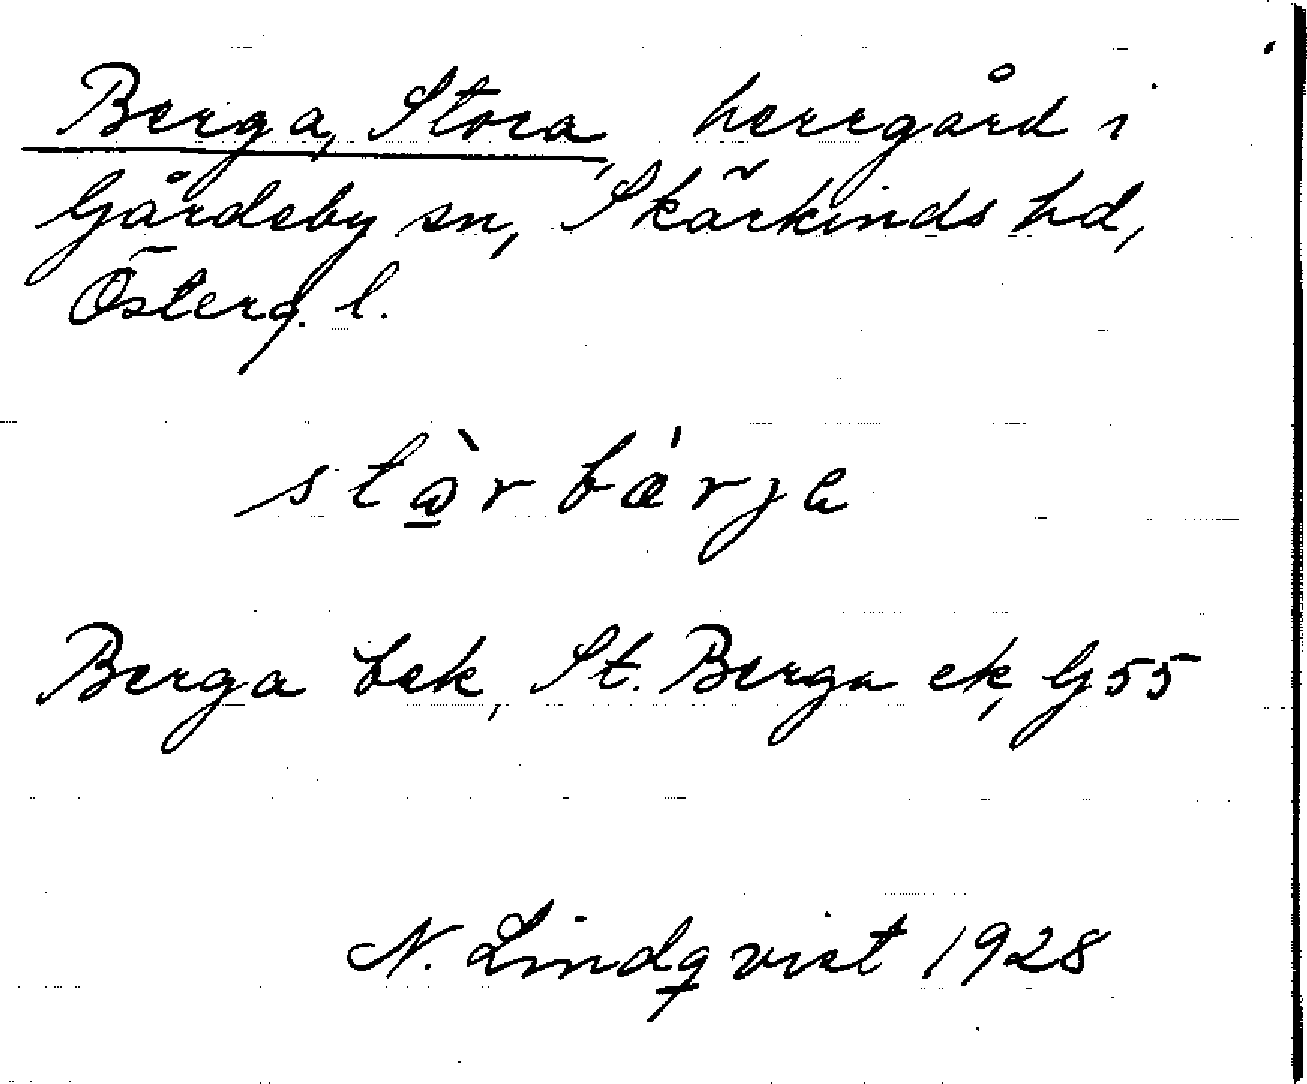 Berga, Stora, herrgård i
Gårdeby sn, Skärkinds hd,
Österg. l.
stø̀rbǽrja
Berga bek, St. Berga ek, G 55
N. Lindqvist 1928